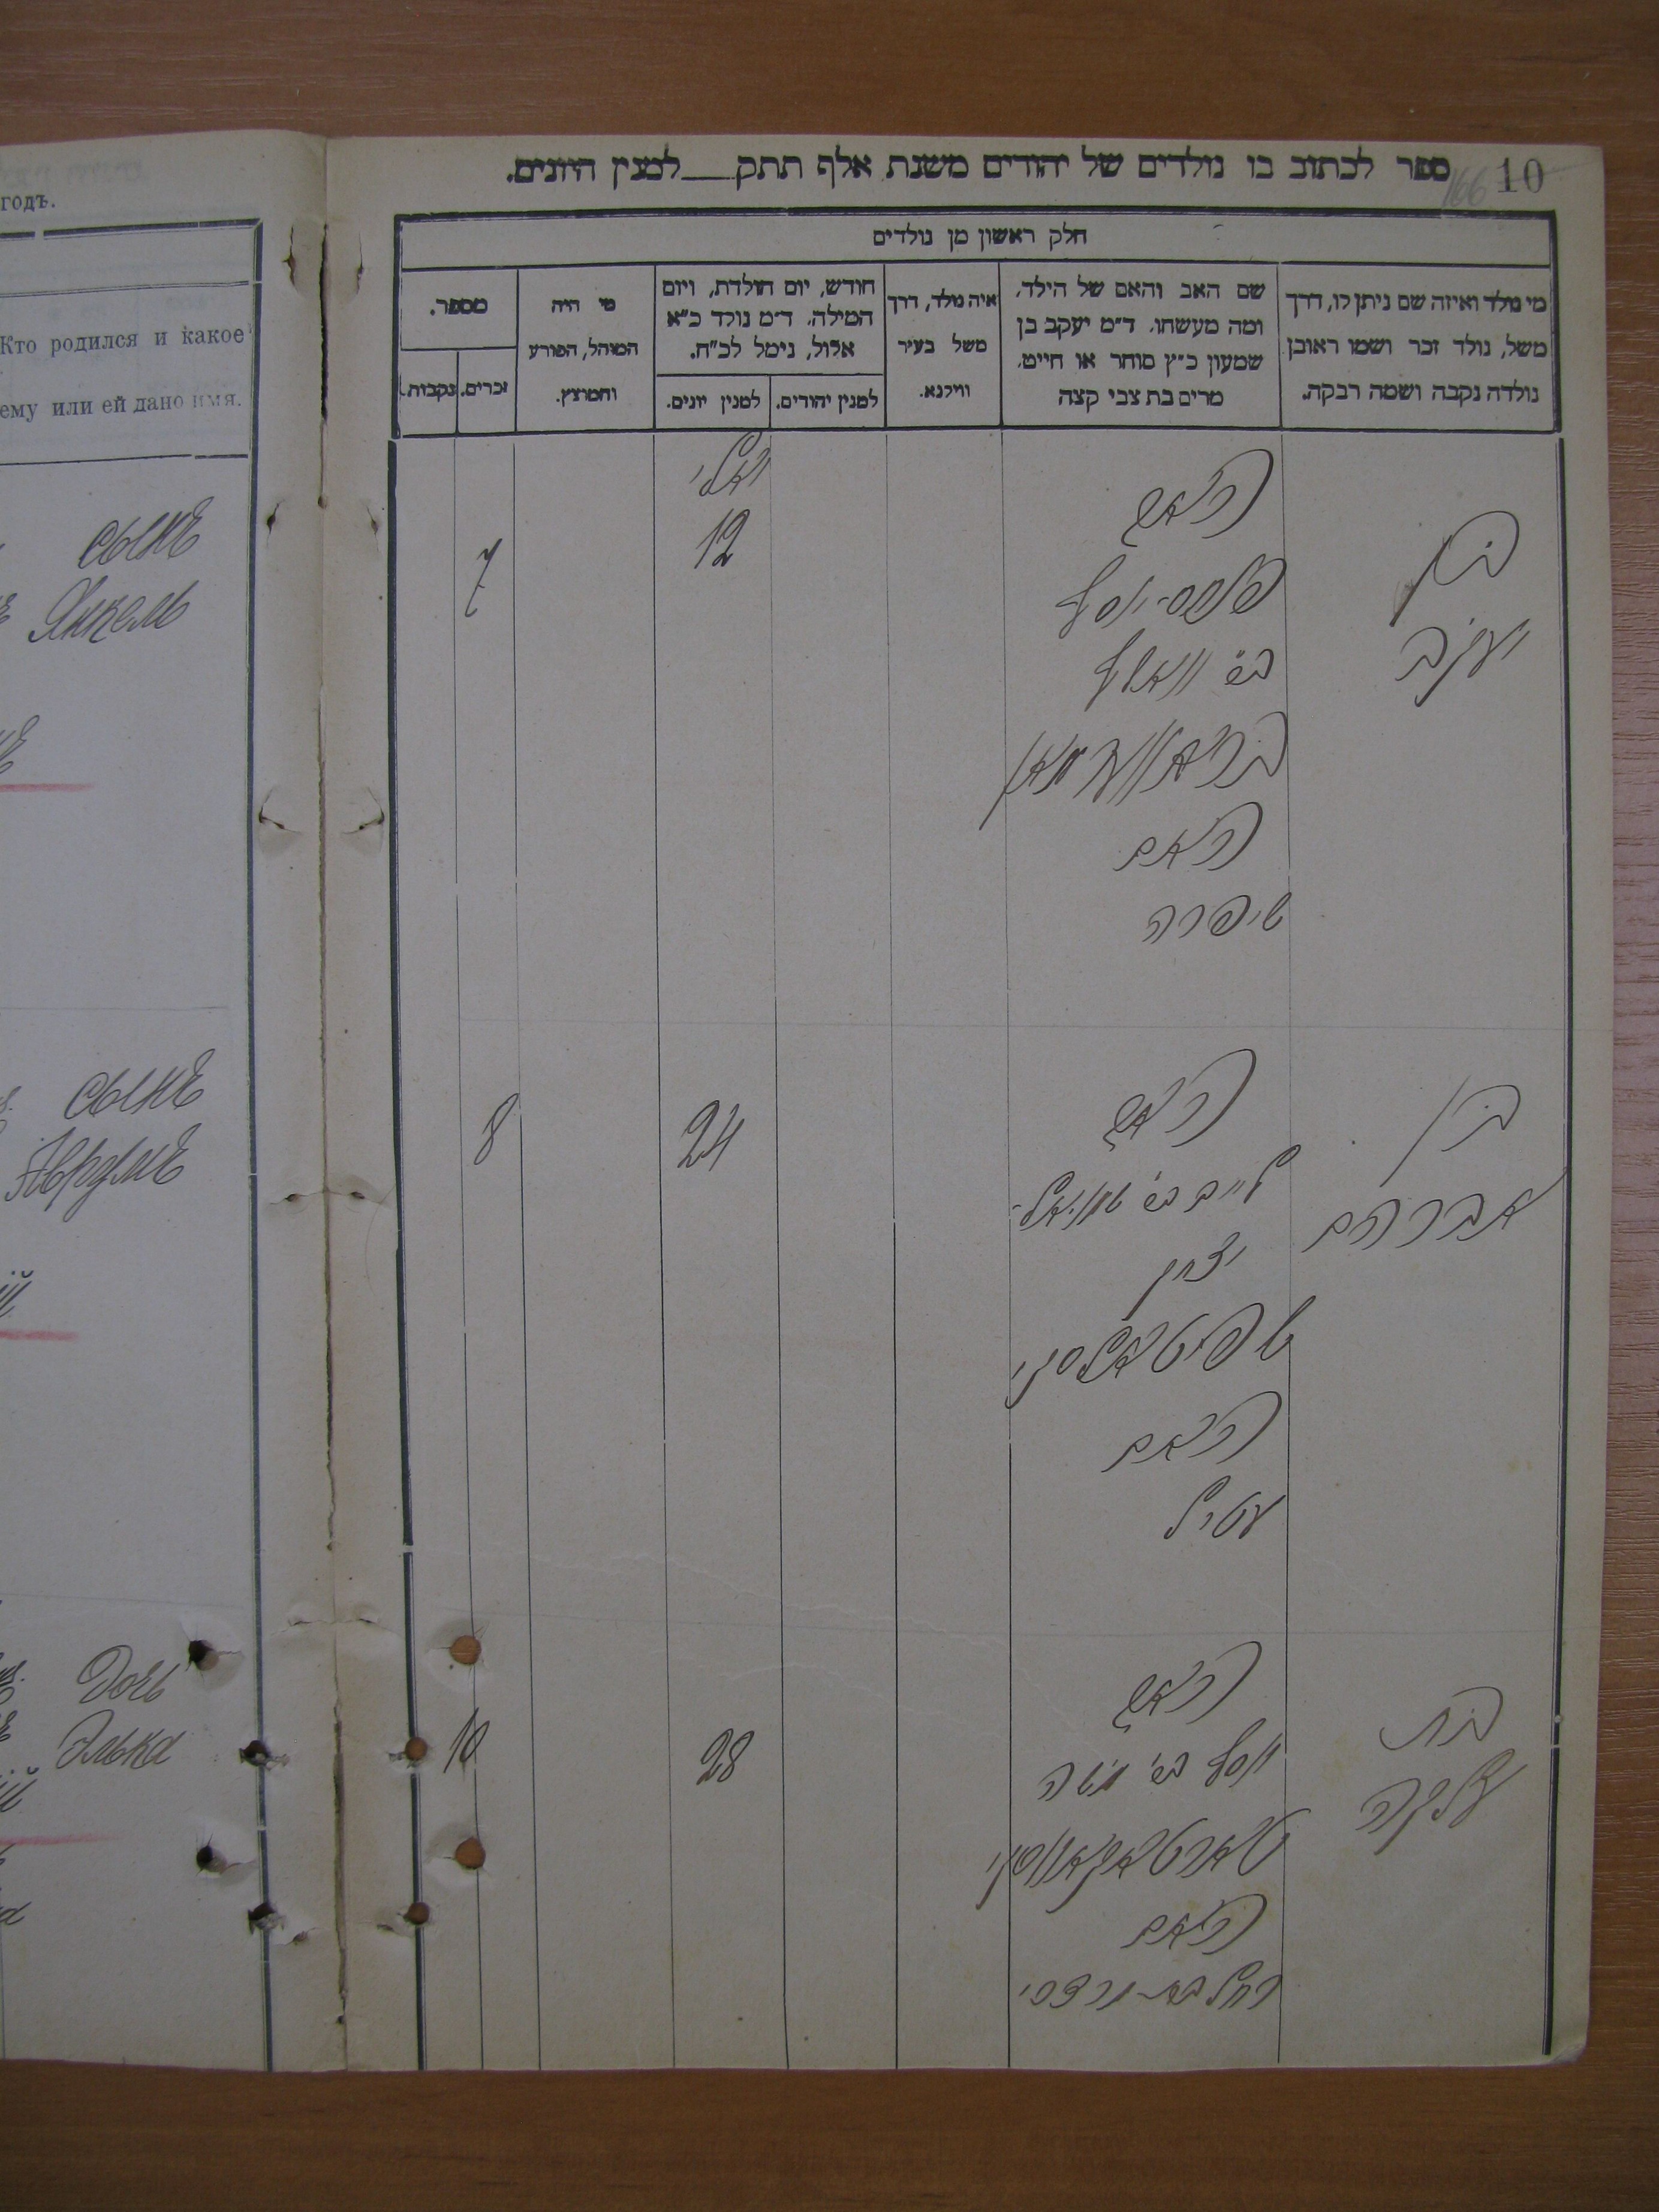 годъ.
Кто родился и какое
ему или ей дано имя.
сынъ
Янкель
сынъ
Аврумъ
Дочь
Элька
10
166
ספר לכתוב בו נולדים של יהודים משנת אלף תתק__למנין היונים.
חלק ראשון מן נולדים
מי נולד ואיזה שם ניתן לו, דרך
משל, נולד זכר ושמו ראובן
נולדה נקבה ושמה רבקה.
שם האב והאם של הילד,
ומה מעשהו. ד״מ יעקב בן
שמעון כ״ץ סוחר או חייט.
מרים בת צבי קצה
איה נולד, דרך
משל בעיר
ווילנא.
חודש, יום הולדת, ויום
המילה. ד״מ נולד כ״א
אלול, נימל לכ״ח.
למנין יהודים.
למנין יונים.
מי היה
המוהל, הפורע
והמוצץ.
מספר.
זכרים.
נקבות.
בן
יעקב
האב
יוסף
ב״ר וואלף
האם
שיפרה
יולי
12
7
בן
אברהם
האב
לייב ב״ר
יצחק
האם
עטיל
24
8
בת
עלקה
האב
יוסף ב״ר משה
האם
רחל בת
28
10